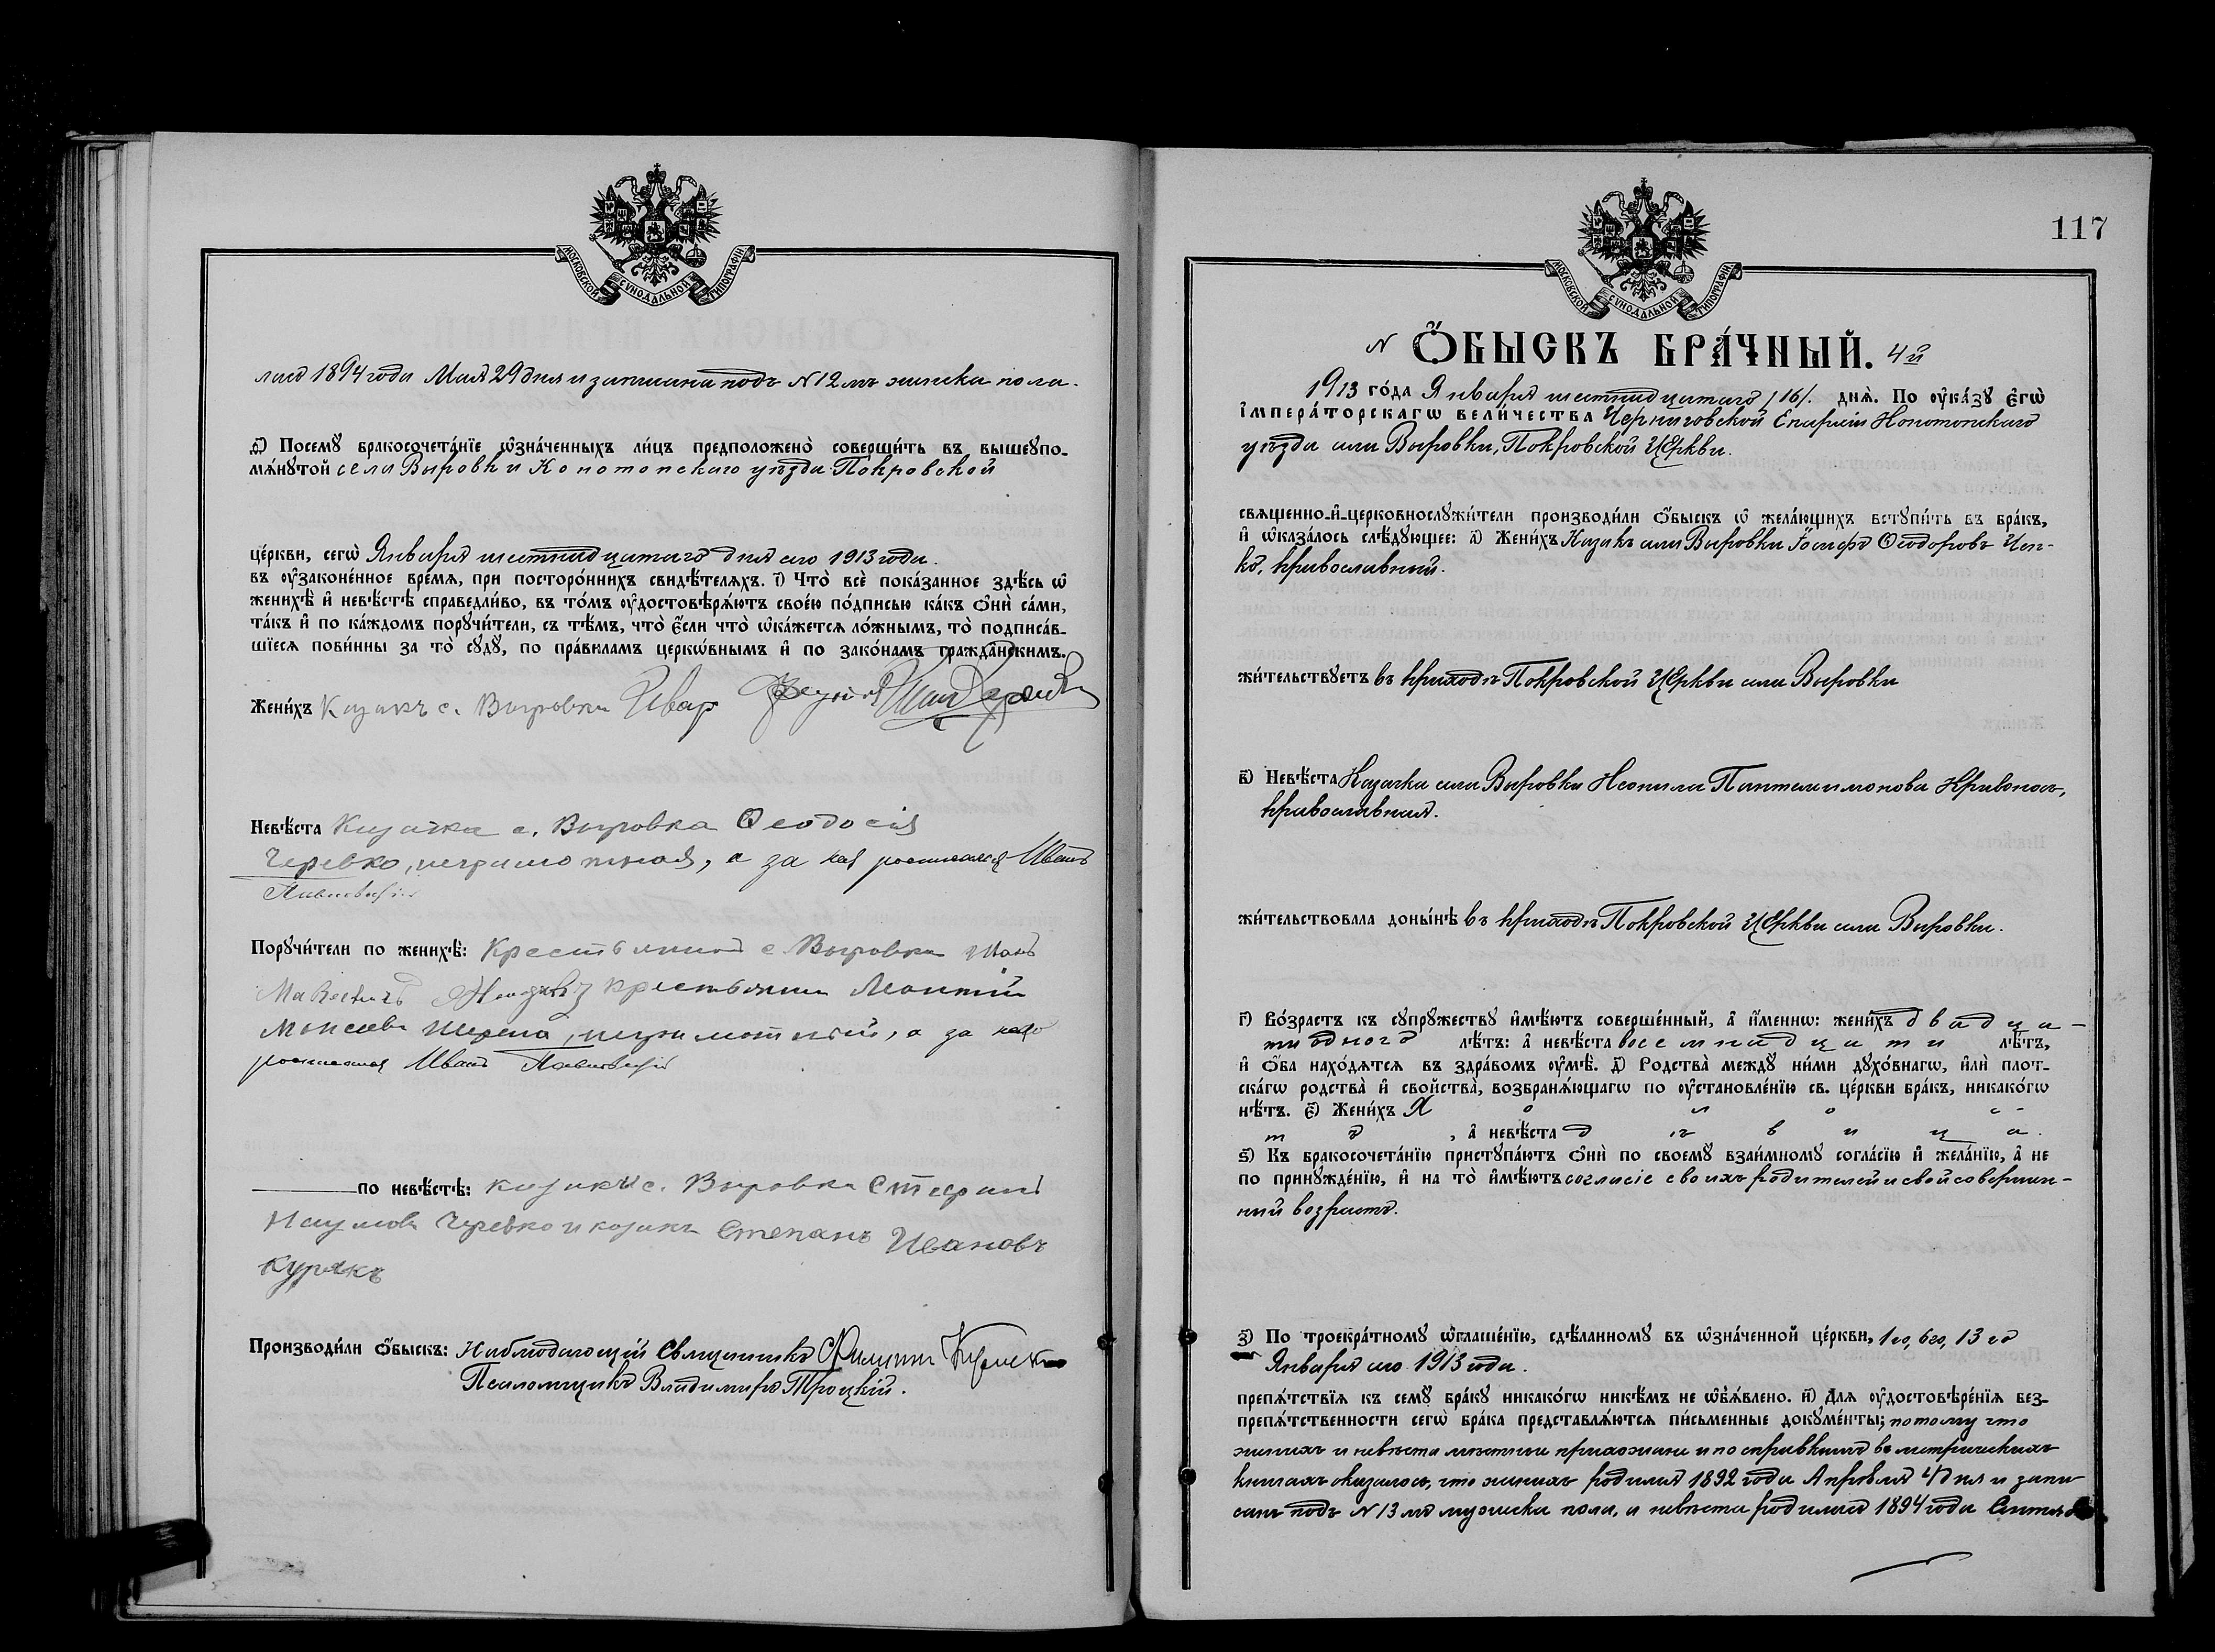 МОСКОВСКОЙ СУНОДАЛЬНОЙ ТИПОГРАФІИ
лась 1894 года Мая 29 дня и записана подъ N 12 мъ женска пола.
Ѳ) Посемꙋ бракосочета́нїе ѡ҆зна́ченныхъ ли́цъ предположено̀ соверши́ть въ вышеꙋпо-
мѧ́нꙋтой села Выровки Конотопскаго уѣзда Покровской
це́ркви, сегѡ̀ Января шестнадцатаго дня сего 1913 года.
въ ᲂу҆законе́нное вре́мѧ, при посторо́ннихъ свидѣ́телѧхъ. і҃) Что̀ всѐ пока́занное здѣ́сь ѡ҆
женихѣ̀ и҆ невѣ́стѣ справедли́во, въ то́мъ ᲂу҆достовѣрѧ́ютъ свое́ю по́дписью ка́къ ѻ҆нѝ са́ми,
та́къ и҆ по ка́ждомъ порꙋчи́тели, съ тѣ́мъ, что̀ є҆́сли что̀ ѡ҆ка́жетсѧ ло́жнымъ, то̀ подписа́в-
шїесѧ пови́нны за то̀ сꙋдꙋ̀, по пра́виламъ церко́внымъ и҆ по зако́намъ гражда́нскимъ.
Жени́хъ Казакъ с. Выровки
Невѣ́ста Казачка с. Выровка Ѳеодосія
Черевко, неграмотная, а за нея росписался Иванъ
Порꙋчи́тели по женихѣ̀: Крестьянинъ с Выровки
крестьянинъ Леонтій
Моисеевъ Шерепа, неграмотный, а за него
росписался Иванъ
по невѣ́стѣ: казакъ с. Выровка Стефанъ
Наумовъ Черевко и козакъ Степанъ Ивановъ
Курякъ
Производи́ли ѻ҆́быскъ: Наблюдающій Священникъ Филиппъ
Псаломщикъ Владимиръ Троцкій.
117
МОСКОВСКОЙ СУНОДАЛЬНОЙ ТИПОГРАФІИ
N Ѻ҆́БЫСКЪ БРА́ЧНЫЙ. 4й
1913 го́да Января шестнадцатаго /16/. днѧ̀. По ᲂу҆ка́зꙋ є҆гѡ̀
І҆мпера́торскагѡ вели́чества Черниговской Епархіи Конотопскаго
уѣзда села Выровки, Покровской Церкви.
свѧщенно-и҆-церковнослꙋжи́тели производи́ли ѻ҆́быскъ ѡ҆ жела́ющихъ встꙋпи́ть въ бра́къ,
и҆ ѡ҆каза́лось слѣ́дꙋющее: а҃) Жени́хъ Казакъ села Выровки Іосифъ Ѳеодоровъ
православный.
жи́тельствꙋетъ въ приходѣ Покровской Церкви села Выровки
в҃) Невѣ́ста Казачка села Выровки Неонила Пантелеимонова Кривонось,
православная.
жи́тельствовала доны́нѣ въ приходѣ Покровской Церкви села Выровки.
г҃) Во́зрастъ къ сꙋпрꙋ́жествꙋ и҆мѣ́ютъ соверше́нный, а҆ и҆́меннѡ: жени́хъ двадца-
ти одного лѣ́тъ: а҆ невѣ́ста восемнадцати лѣ́тъ,
и҆ ѻ҆́ба нахо́дѧтсѧ въ здра́вомъ ᲂу҆мѣ̀. д҃) Родства̀ междꙋ ни́ми дꙋхо́внагѡ, и҆лѝ пло́т-
скагѡ родства̀ и҆ сво́йства, возбранѧ́ющагѡ по ᲂу҆становле́нїю св. це́ркви бра́къ, никако́гѡ
нѣ́тъ. є҃) Жени́хъ Холос-
тъ, а҆ невѣ́ста дѣвица.
ѕ҃) Къ бракосочета́нїю пристꙋпа́ютъ ѻ҆нѝ по своемꙋ̀ взаи́мномꙋ согла́сїю и҆ жела́нїю, а҆ не
по принꙋжде́нїю, и҆ на то̀ и҆мѣ́ютъ согласіе своихъ родителей и свой совершен-
ный возрастъ.
з҃) По троекра́тномꙋ ѡ҆глаше́нїю, сдѣ́ланномꙋ въ ѡ҆зна́ченной це́ркви, 1го, 6го, 13 го
Января сего 1913 года.
препѧ́тствїѧ къ семꙋ̀ бра́кꙋ никако́гѡ никѣ́мъ не ѡ҆б̾ѧ́влено. и҃) Длѧ ᲂу҆достовѣре́нїѧ без-
препѧ́тственности сегѡ̀ бра́ка представлѧ́ютсѧ пи́сьменные докꙋме́нты; потому что
женихъ и невѣста мѣстные прихожане и по справкамъ въ метрическихъ
книгахъ оказалось, что женихъ родился 1892 года Апрѣля 4 дня и запи-
санъ подъ N 13 мъ мужска пола, а невѣста родилась 1894 года